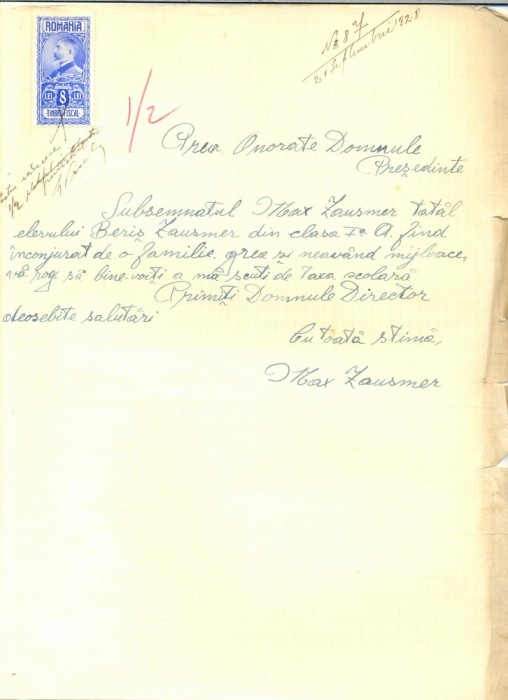 ROMANIA
LEI 8 LEI
TIMBRU FISCAL
№ 87
21 Septembrie 1928
1/2
Prea Onorate Domnule
Președinte
Subsemnatul Max Zausmer tatăl
elevului Beriș Zausmer din clasa I-a A. fiind
înconjurat de o familie grea și neavând mijloace,
vă rog să bine-voiți a mă scuti de taxa școlară
Primiți Domnule Director
deosebite salutări
Cu toată stima,
Max Zausmer